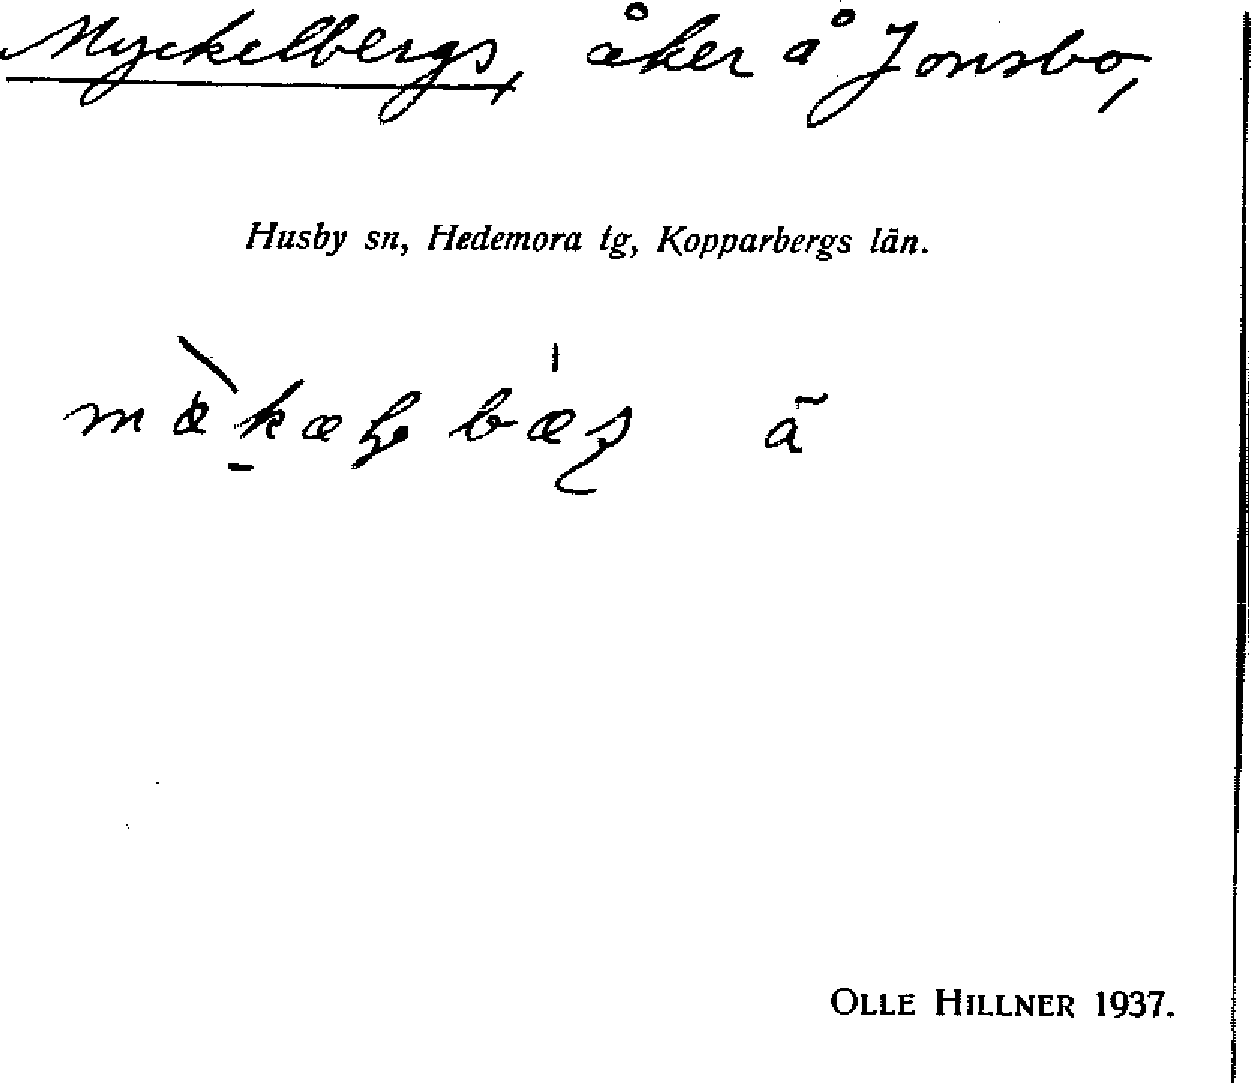 Myckelbergs, åker å Jonsbo,
Husby sn, Hedemora tg, Kopparbergs län.
OLLE HILLNER 1937.